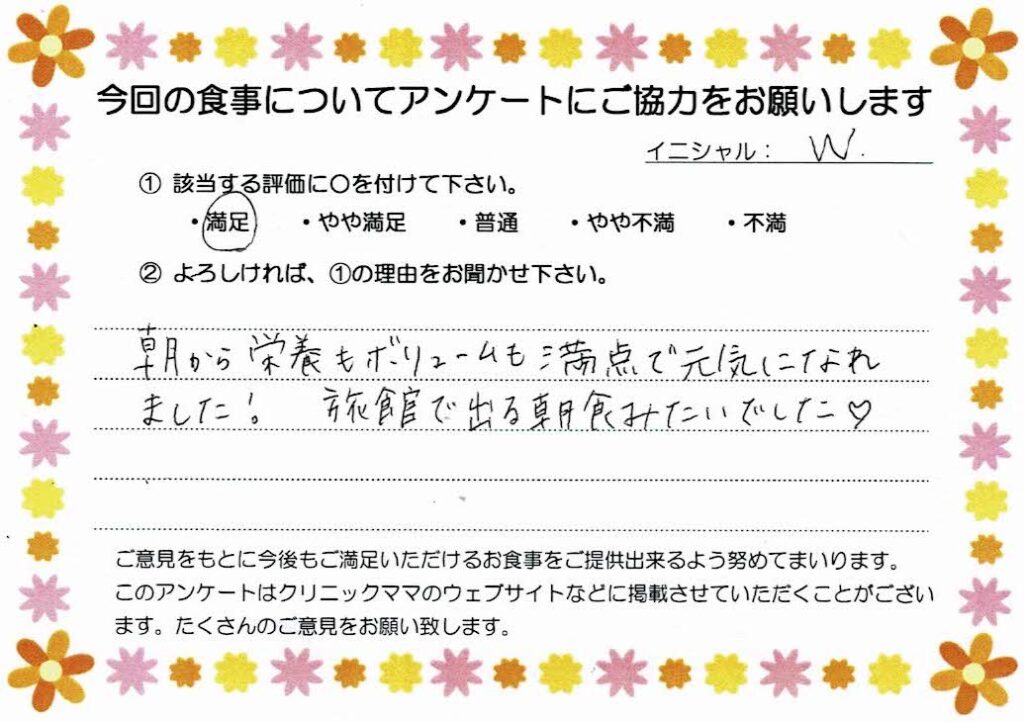 今回の食事についてアンケートにご協力をお願いします
イニシャル： W.
① 該当する評価に〇を付けて下さい。
・満足 ・やや満足 ・普通 ・やや不満 ・不満
② よろしければ、①の理由をお聞かせ下さい。
朝から栄養もボリュームも満点で元気になれ
ました！ 旅館で出る朝食みたいでした♡
ご意見をもとに今後もご満足いただけるお食事をご提供出来るよう努めてまいります。
このアンケートはクリニックママのウェブサイトなどに掲載させていただくことがござい
ます。たくさんのご意見をお願い致します。